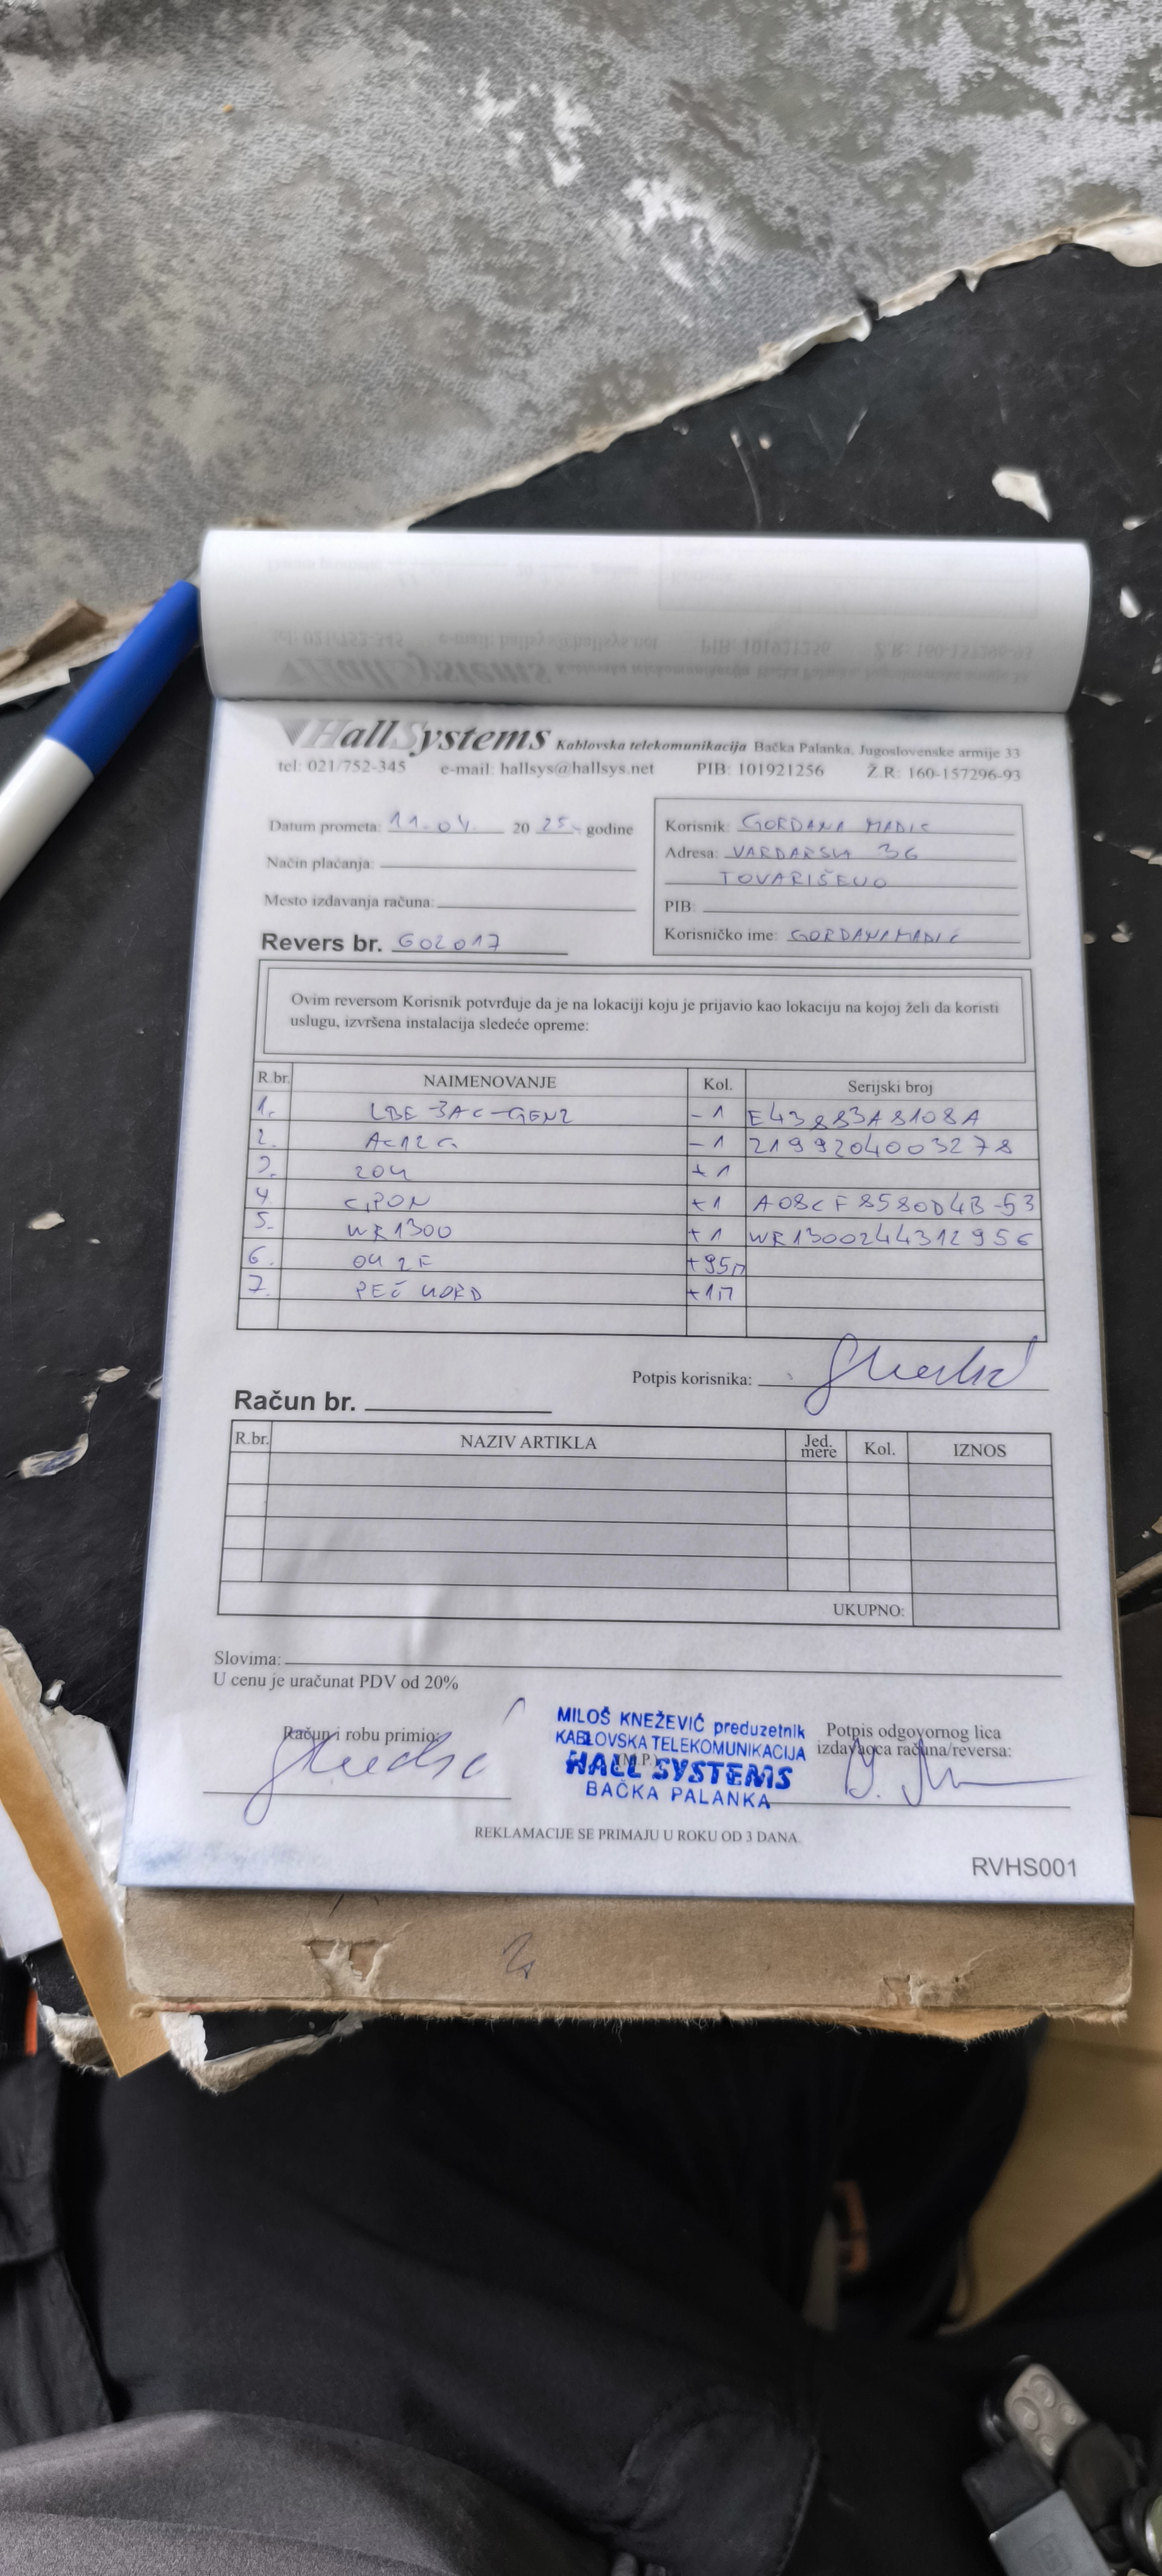 HallSystems Kablovska telekomunikacija Bačka Palanka, Jugoslovenske armije 33
tel: 021/752-345 e-mail: hallsys@hallsys.net PIB: 101921256 Ž.R: 160-157296-93
Datum prometa: 11.04. 20 25. godine
Način plaćanja:
Mesto izdavanja računa:
Revers br. GO2017
Korisnik: GORDANA MADIĆ
Adresa: VARDARSKA 36
TOVARIŠEVO
PIB:
Korisničko ime: GORDANAMADIĆ
Ovim reversom Korisnik potvrđuje da je na lokaciji koju je prijavio kao lokaciju na kojoj želi da koristi
uslugu, izvršena instalacija sledeće opreme:
R.br. NAIMENOVANJE Kol. Serijski broj
1. LBE-5AC-GEN2 -1 E43883A8108A
2. AC12G -1 2199204003278
3. ZOK +1
4. GPON +1 A08CF8580D4B-53
5. WR1300 +1 WR1300244312956
6. OK 2F +95m
7. PEČ KORD +1m
Potpis korisnika:
Račun br.
R.br. NAZIV ARTIKLA Jed. mere Kol. IZNOS
UKUPNO:
Slovima:
U cenu je uračunat PDV od 20%
Račun i robu primio:
(M.P.)
MILOŠ KNEŽEVIĆ preduzetnik
KABLOVSKA TELEKOMUNIKACIJA
HALL SYSTEMS
BAČKA PALANKA
Potpis odgovornog lica
izdavaoca računa/reversa:
REKLAMACIJE SE PRIMAJU U ROKU OD 3 DANA
RVHS001